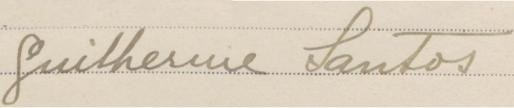 Guilherme Santos